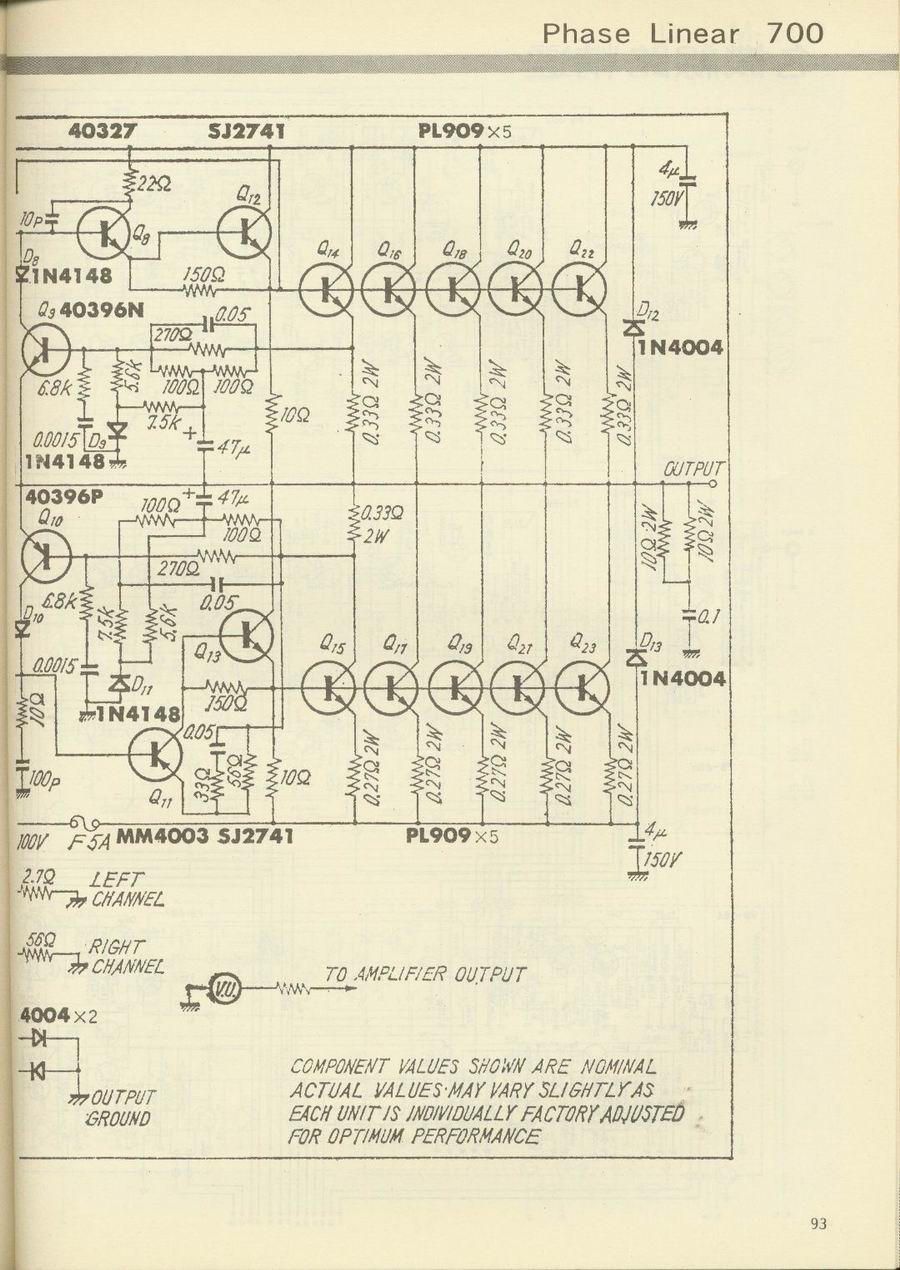 Phase Linear 700
40327 SJ2741 PL909×5
22Ω
4μ
150V
10p
Q8
Q12
D8
1N4148
150Ω
Q14 Q16 Q18 Q20 Q22
Q9 40396N
0.05
270Ω
D12
1N4004
6.8k
5.6k
100Ω 100Ω
7.5k
10Ω
0.33Ω 2W
0.33Ω 2W
0.33Ω 2W
0.33Ω 2W
0.33Ω 2W
0.0015 D9
+
47μ
1N4148
OUTPUT
40396P
+
47μ
100Ω
100Ω
Q10
0.33Ω
2W
10Ω 2W
10Ω 2W
270Ω
0.05
6.8k
7.5k
5.6k
0.1
D10
Q13
Q15 Q17 Q19 Q21 Q23
D13
1N4004
0.0015
D11
150Ω
1N4148
10Ω
0.05
33Ω
56Ω
10Ω
0.27Ω 2W
0.27Ω 2W
0.27Ω 2W
0.27Ω 2W
0.27Ω 2W
100p
Q11
100V F 5A MM4003 SJ2741 PL909×5
4μ
150V
2.7Ω LEFT
CHANNEL
56Ω RIGHT
CHANNEL
V.U. TO AMPLIFIER OUTPUT
4004×2
OUTPUT
GROUND
COMPONENT VALUES SHOWN ARE NOMINAL
ACTUAL VALUES MAY VARY SLIGHTLY AS
EACH UNIT IS INDIVIDUALLY FACTORY ADJUSTED
FOR OPTIMUM PERFORMANCE
93